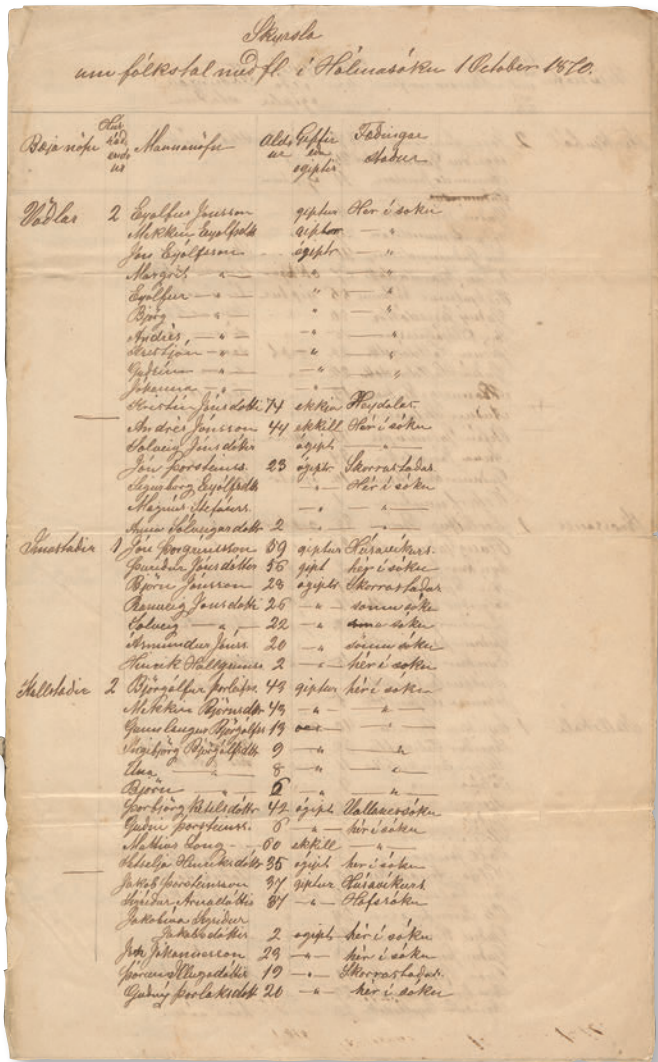 Skyrsla
um fólkstal með fl. í Hólmasókn 1 October 1870.
Bæja nöfn Hús ráð endur Mannanöfn Aldur Giptir en ógiptir Fæðingar staður
Vöðlar 2 Eyólfur Jónsson giptur Hér í sókn
Mekkin Eyólfsdttr giptur — „
Jón Eyólfsson ógiptr — „ —
Margrét — „ — — „ — — „ —
Eyólfur — „ — „ — „ —
Björg — „ — — „ — — „ —
Andrés — „ — — „ — — „ —
Kristján — „ — — „ — — „ —
Guðrún — „ — — „ — — „ —
Jóhanna — „ — — „ —
Kristín Jónsdótti 74 ekkja Heydalas.
Andrés Jónsson 44 ekkill Hér í sókn
Solveig Jónsdóttir ógipt — „ —
Jón Þorsteinss. 23 ógiptr Skorrastaðas.
Sigurborg Eyólfsdttr — „ — Hér í sókn
Magnús Stefánss. — „ — — „ —
Anna Sólveigardottr 2 — „ — — „ —
Ímastaðir 1 Jón Þorgrímsson 59 giptur Húsavíkurs.
Þuríður Jónsdóttor 56 gipt hér í sókn
Björn Jónsson 28 ógiptr Skorrastaðas
Rannveig Jónsdótti 26 — „ — sömu sókn
Solveig — „ — 22 — „ — sömu sókn
Ásmundur Jónss. 20 — „ — sömu sókn
Henrik Hallgrímss. 2 — „ — hér í sókn
Kallstaðir 2 Björgólfur Þorleifss. 43 giptur hér í sókn
Mekkin Björnsdttr 43 — „ — — „ —
Gunnlaugur Björgólfss 13 — „ —
Ingibjörg Björgólfsdttr 9 — „ — „
— „ — 8 — „ — „ —
Björn — „ — 6 — „ — „
Þorbjörg Ketilsdóttr 42 ógipt Vallanessókn
Guðni Þorsteinss. 6 — „ — hér í sókn
Mattías Long 60 ekkill — „ —
Setselja Henriksdottr 35 ógipt hér í sókn
Jakob Þorsteinsson 37 giptur Húsavíkurs
Sigríður Arnadóttir 37 — „ — Hofssókn
Jakobína Sigríður
Jakobsdóttir 2 ógipt hér í sókn
Jón Jóhannesson 29 — „ — hér í sókn
Þórunn Illugadóttir 19 — „ — Skorrastaðas.
Guðný Þorláksdott 20 — „ — hér í sókn